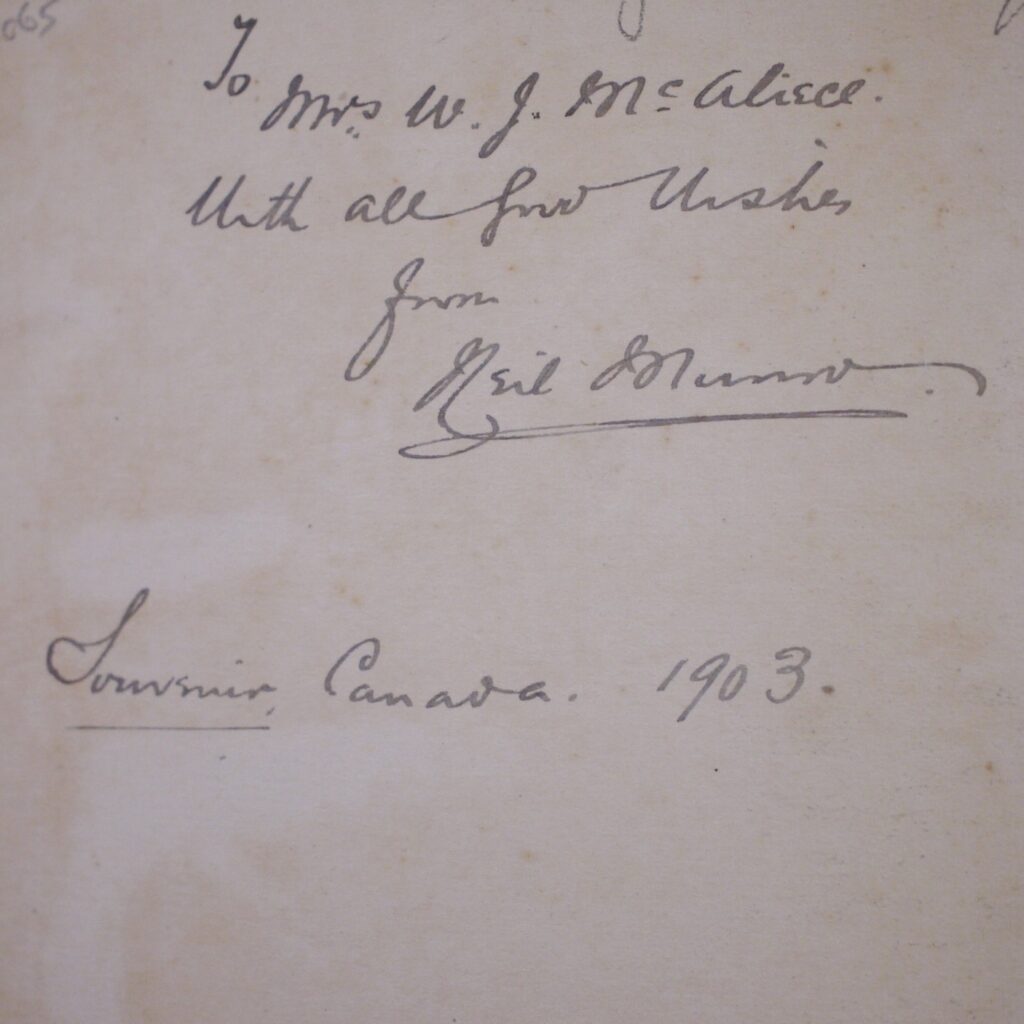 065
To
Mrs. W. J. McAliece.
With all Good Wishes
from
Neil Munro.
Souvenir, Canada. 1903.